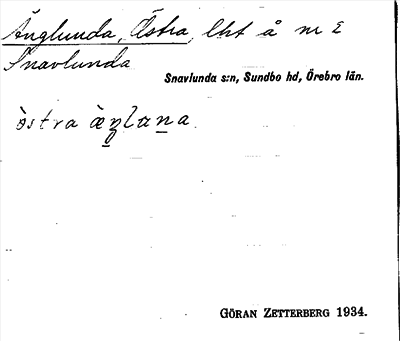 Änglunda, Östra, lht å m E
Snavlunda
Snavlunda s:n, Sundbo hd, Örebro län.
östra
GÖRAN ZETTERBERG 1934.